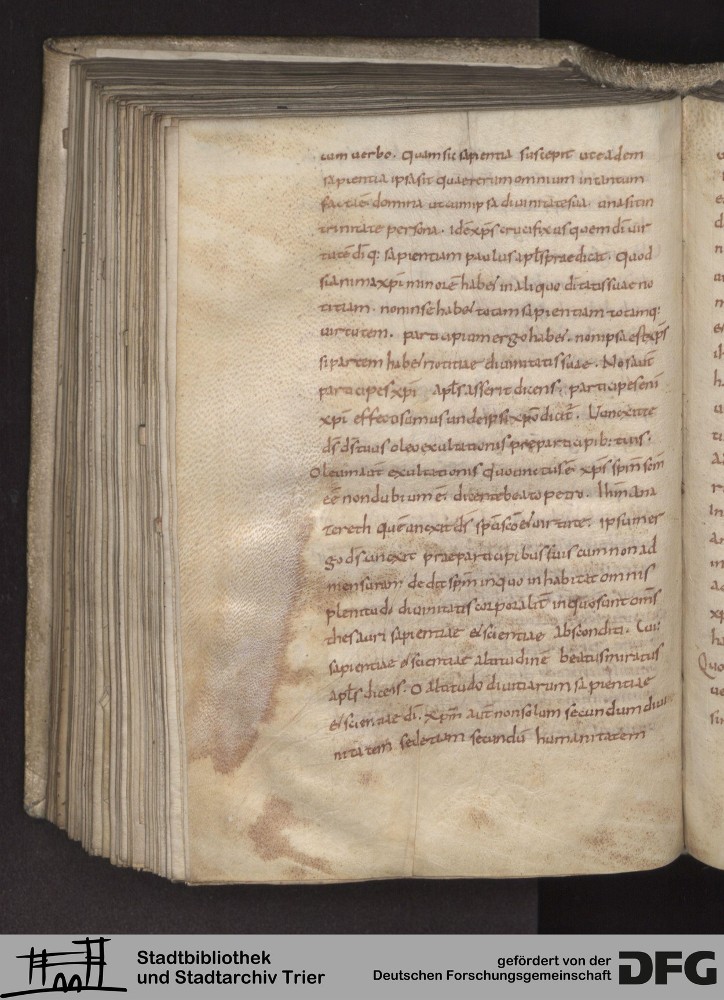 cum uerbo. Quam sic sapientia suscepit ut eadem
sapientia ipsa sit quae rerum omnium in tantum
domina ut cum ipsa diuinitate sua una sit in
trinitate persona. Id ē xp̄s crucifixus quem di uir
tutē di q: sapientiam paulus apl̄s praedicat. Quod
si anima xp̄i minorē habet in aliquo ditatis suae no
titiam. non in se habet totam sapientiam totamq:
uirtutem. participium ergo habet. non ipsa est xp̄s
si partem habet notitiae diuinitatis suae. Nos aut̄
participes xp̄i apl̄s asserit dicens. participes eni
xp̄i effecti sumus unde ipsi xp̄o dicit̄. Unxit te
ds̄ ds̄ tuus oleo exultationis prę participib: tuis.
Oleum aut̄ exultationis quo unctus ē xp̄s sp̄m sc̄m
eē non dubium ē. dicente beato petro. Ihm̄ a na
zareth quē unxit ds̄ sp̄u sc̄o et uirtute. ipsum er
go ds̄ unxit prae participibus suis cum non ad
mensuram dedit sp̄m in quo inhabitat omnis
plenitudo diuinitatis corporalit̄ in quo sunt om̄s
thesauri sapientiae et scientiae absconditi. Cuius
sapientiae et scientiae altitudinē beatus miratus
apl̄s dicens. O altitudo diuitiarum sapientiae
et scientiae di. xp̄m aut̄ non solum secundum diui
nitatem sed etiam secundū humanitatem
Stadtbibliothek
und Stadtarchiv Trier
gefördert von der
Deutschen Forschungsgemeinschaft
DFG